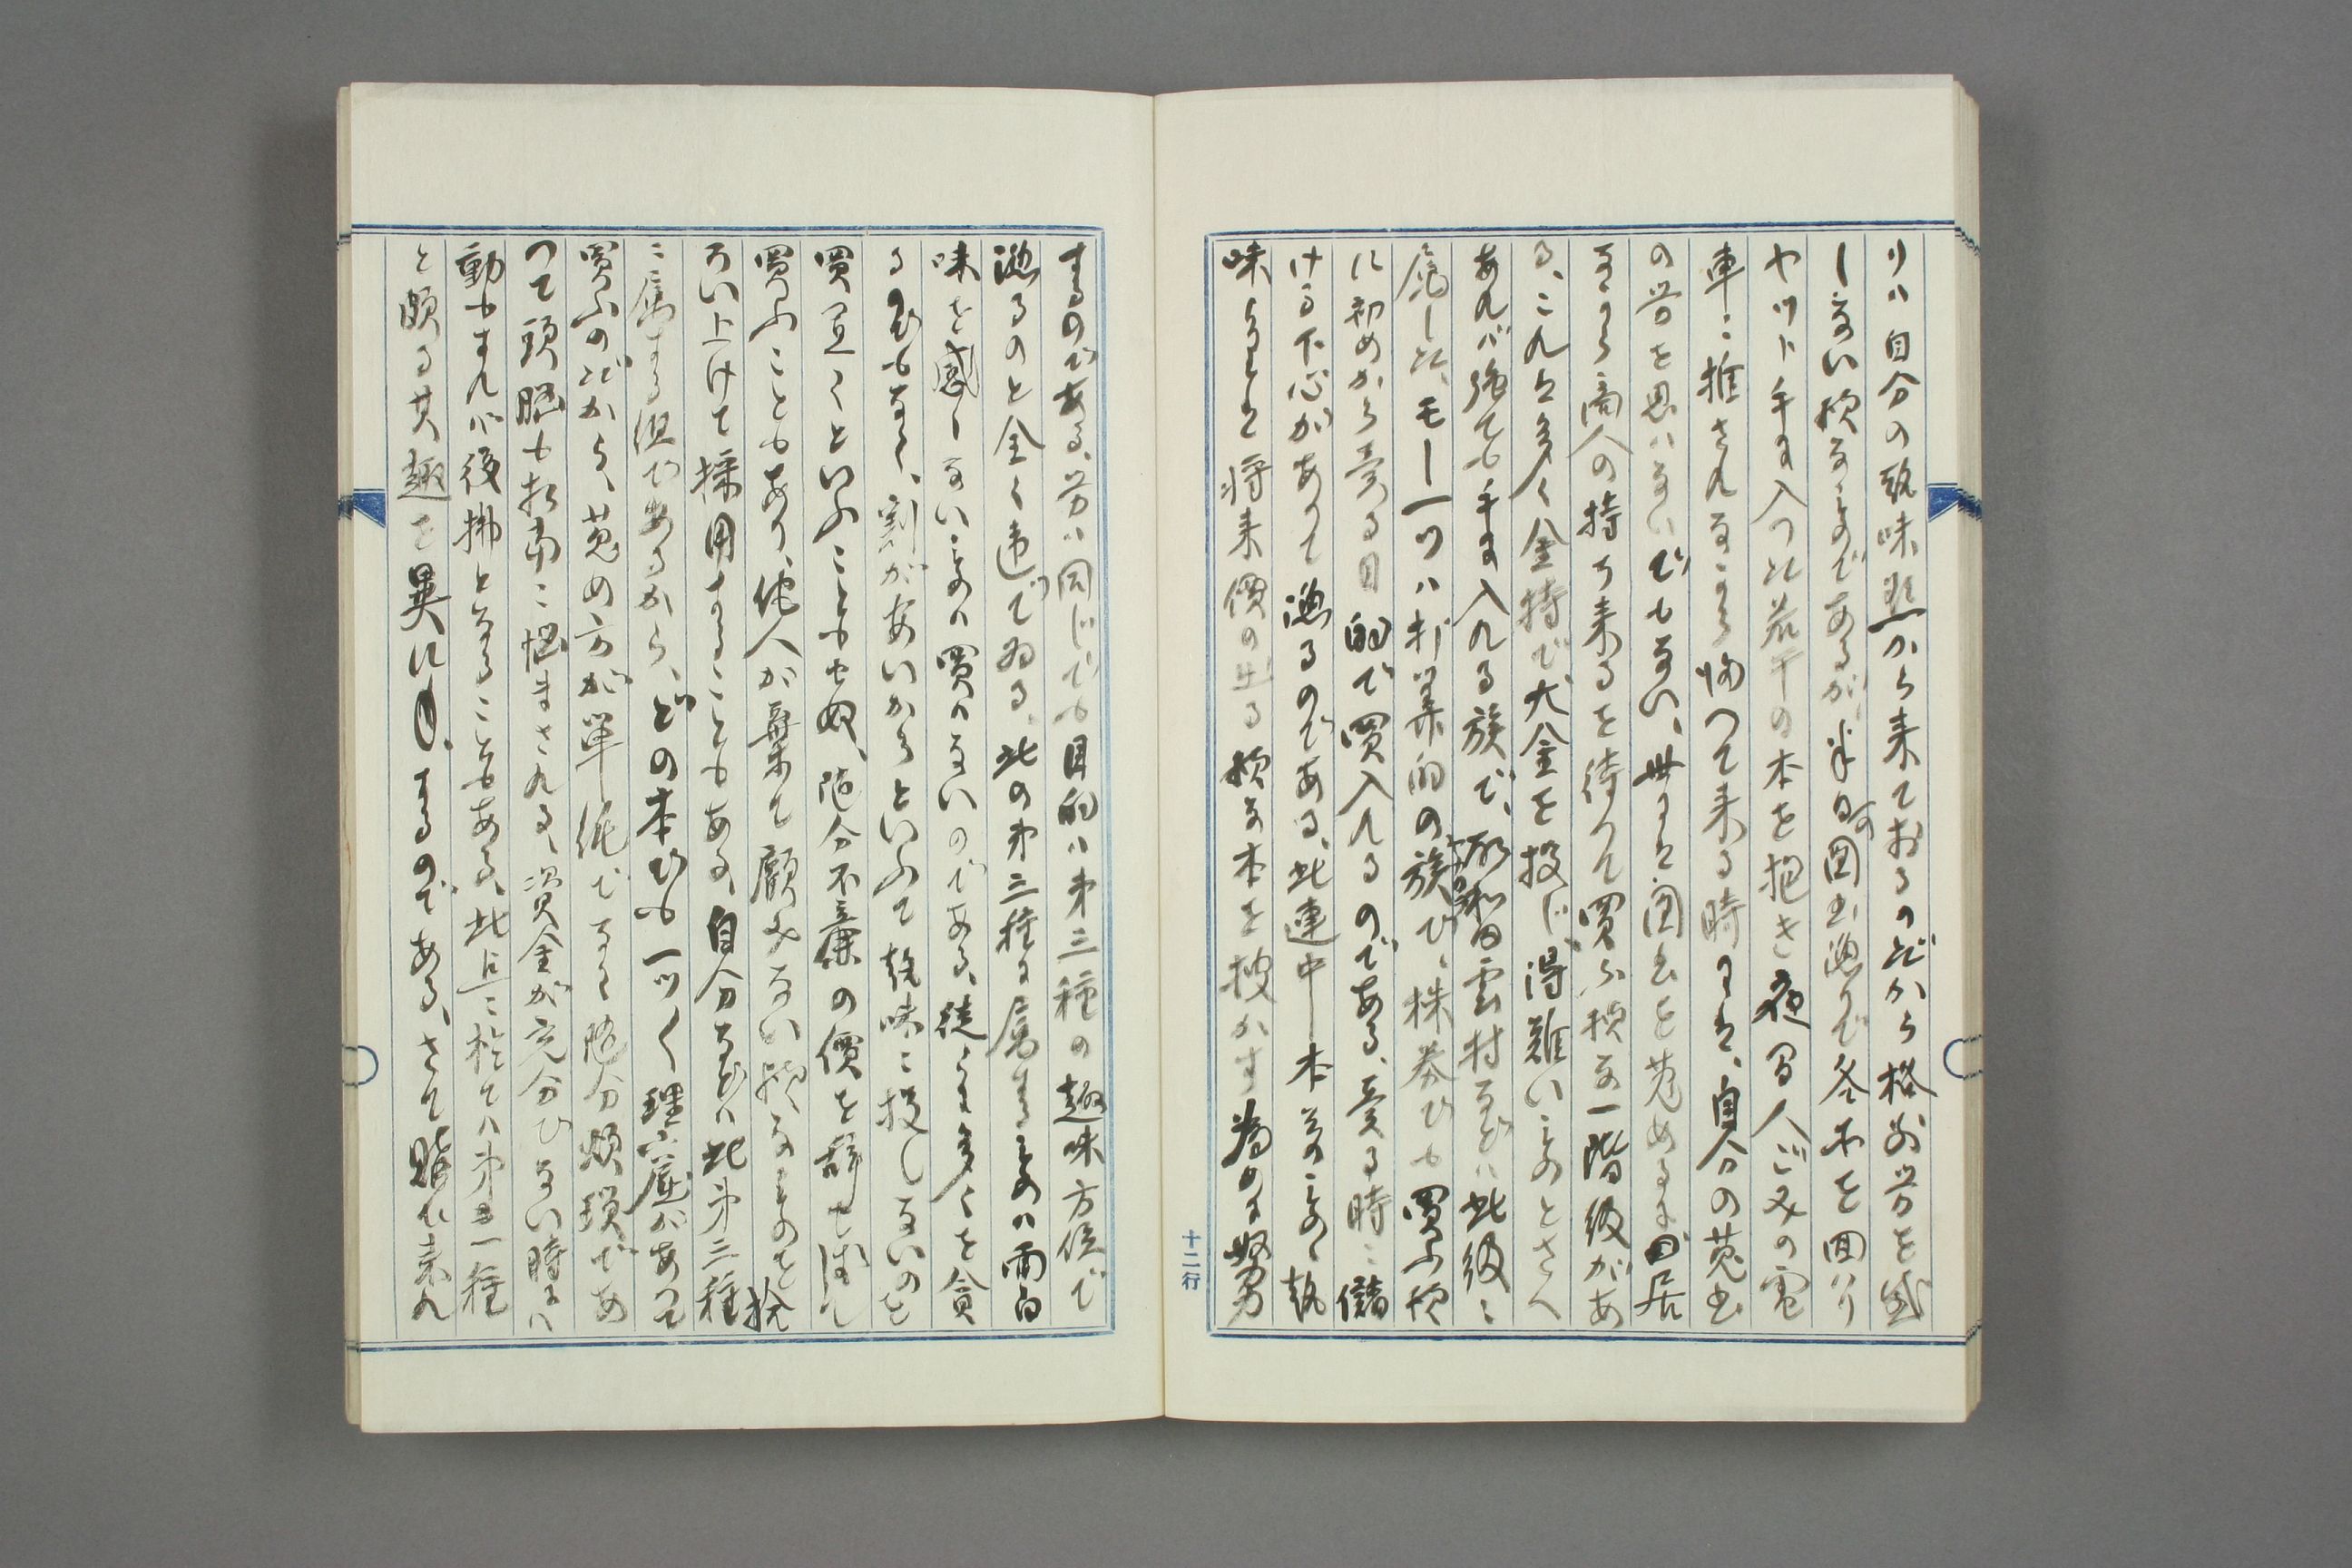 りハ自分の趣味の上から来ておるのだから格別労を感
しない様なものであるが、半日の図書漁りで冬市を回り
ヤツト手に入つた若干の本を抱き夜る人ごみの電
車ニ推されながら帰つて来る時には、自分の蒐書
の労を思ハないでもない、世には図書を蒐めるに居
ながら商人の持ち来るを待つて買ふ様な一階級があ
る、これは多く金持で大金を投じ、得難いものとさへ
あれバ強ても手に入れる族で、和田雲村などハ此級ニ
属した、モー一ツハ打算的の族で、株券でも買ふ様
に初めから売る目的で買入れるのである、売る時ニ儲
ける下心があつて漁るのである、此連中ー本なもの、趣
味よりは将来価の出る様な本を捜かす為めに努
力
十二行
するのである、労ハ同じでも目的ハ第三種の趣味方位で
漁るのと全く違つてゐる、此の第三種に属するものハ面白
味を感しないものハ買ハないのである、徒らに多くを貪
るでもなく、割があいからといふて趣味ニ投しないのを
買置くといふこともせぬ、随分不廉の価を辞せずして
買ふこともあり、他人が棄て顧みない様なものを拾
ろい上けて採用することもある、自分などハ此第三種
ニ属する組であるから、どの本でも一ツ〱理窟があつて
買ふのだから、蒐め方が単純でなく随分煩瑣であ
つて頭脳も相当ニ悩まさる、資金が充分でない時にハ
動もすれバ後払となることもある、此点ニ於てハ第一種
と頗る其趣を異にするのである、さて購ひ来れ